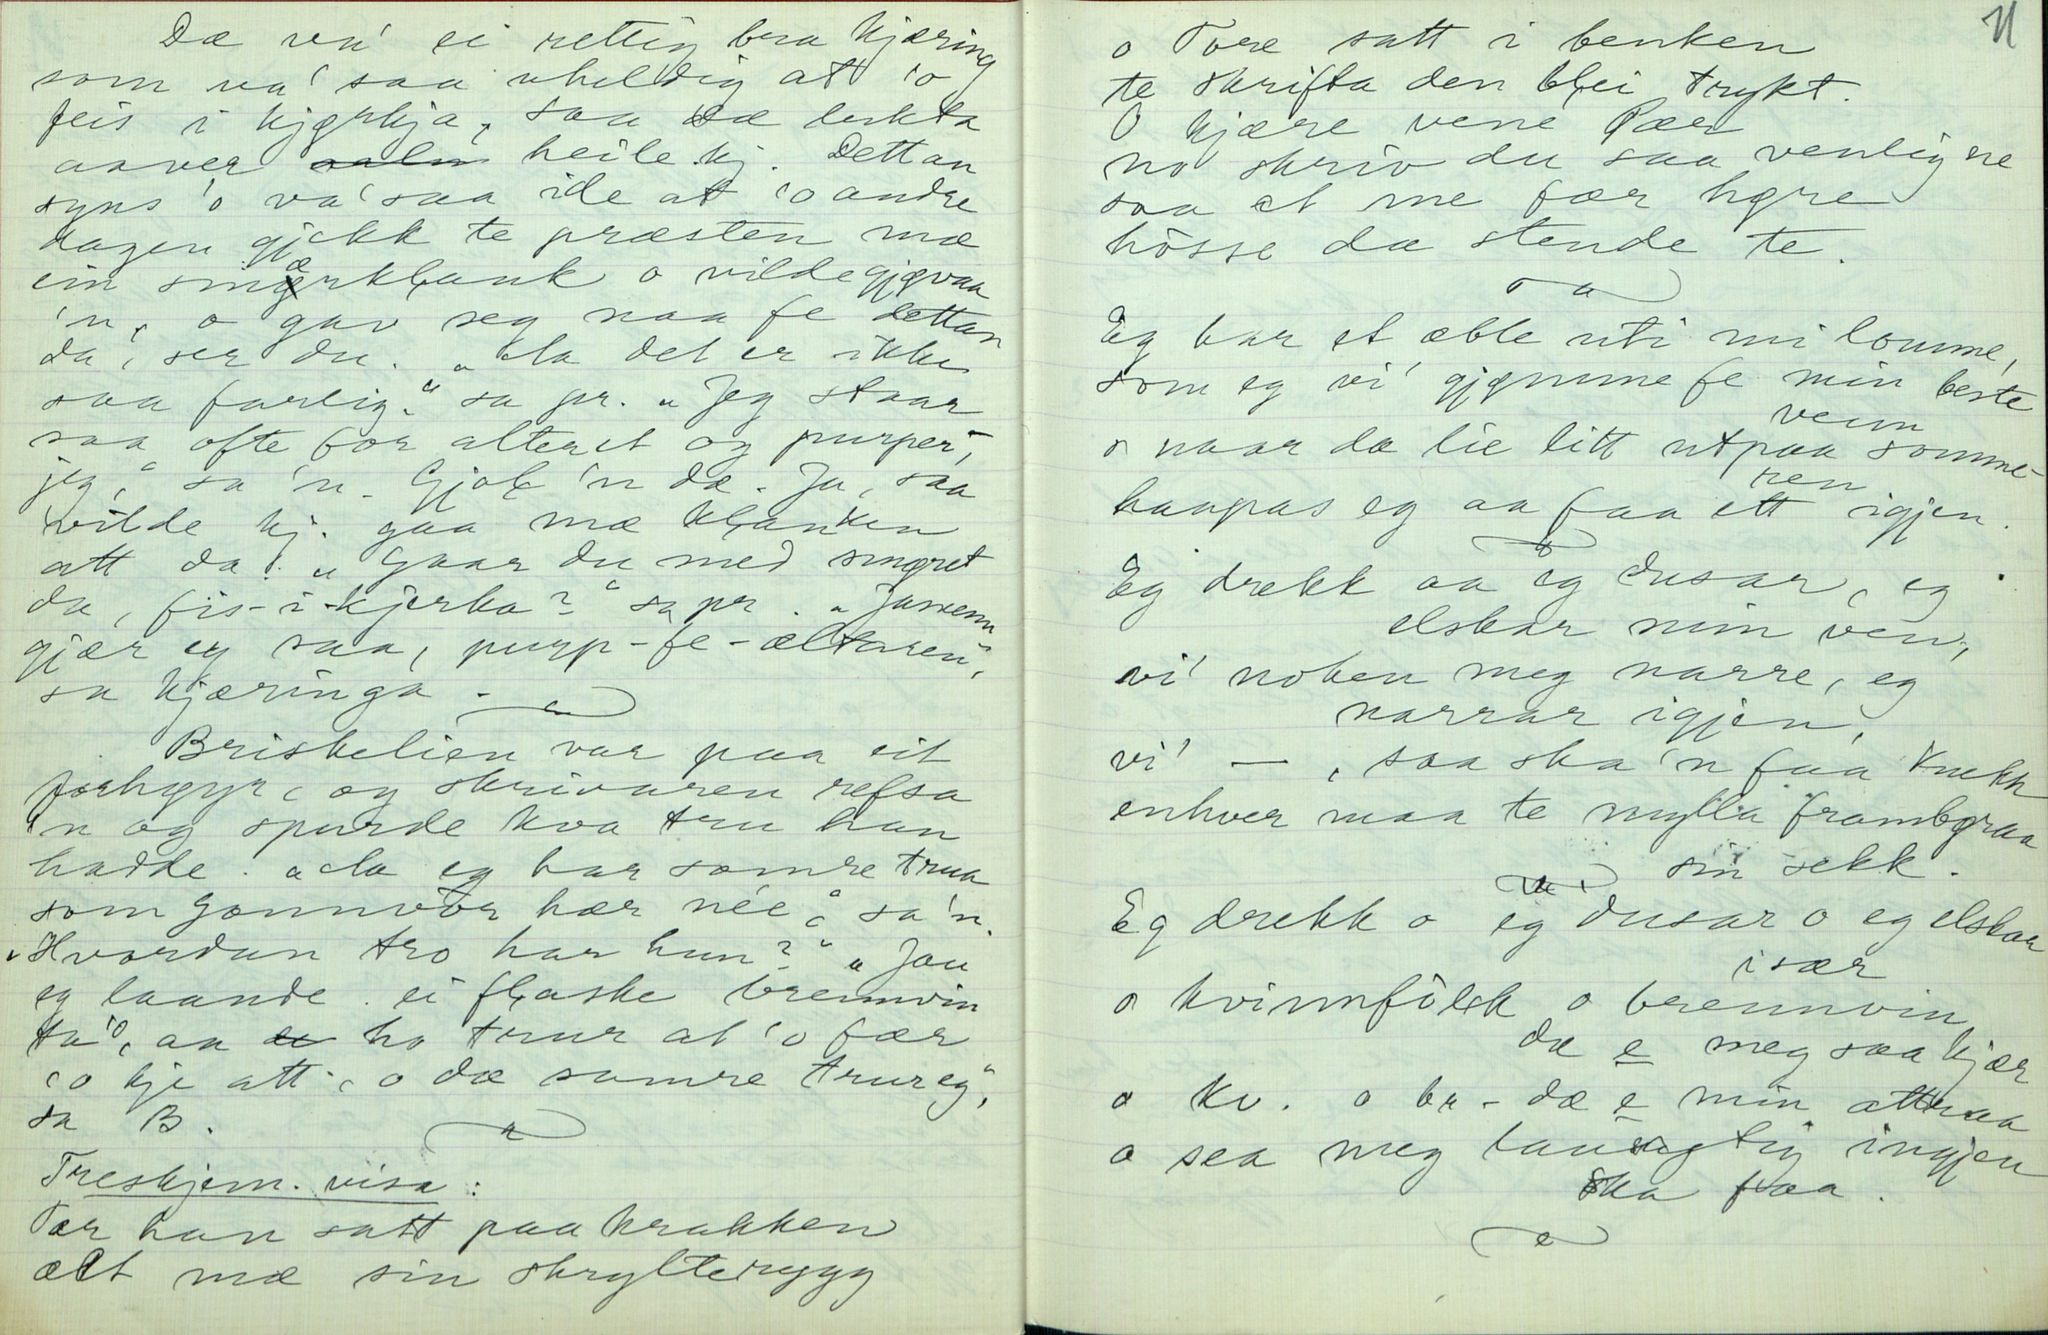 Dæ va' ei rettig bra kjæring
som va' saa uheldig at 'o
feis i kjørkja, saa dæ lukta
aaver heile kj. Dettan
syns 'o va' saa ile at 'o andre
dagen gjekk te præsten mæ
ein smærklank o vilde gjøvaa
'n, o gav seg naa fe dettan
da', ser du. „Aa det er ikke
saa farlig." sa pr. „Jeg staar
saa ofte for alteret og purper,
jeg," sa 'n. Gjol 'n dæ. Ja, saa
vilde kj. gaa mæ klanken
att da'. „Gaar du med smøret
da, fis-i-kjerka?" sa pr. „Jamenn
gjær eg saa, purp-fe-ælteren",
sa kjæringa.
Briskelien var paa eit
forhøyr, og skrivaren refsa
'n og spurde kva tru han
hadde. „Aa eg har somre trua
som Gonnvor hær née," sa'n.
„Hvordan tro har hun?" „Jau
eg laande ei flaske brennvin
ta'o, aa ho trur at 'o fær
'o kje att, o dæ somre trur eg",
sa B.
Treskjem. visa:
Pær han satt paa krakken
alt mæ sin skrylterygg
11
o Tore satt i benken
te skrifta den blei trykt.
O kjære vene Pær
no skriv du saa venlig ne
saa at me fær høre
hôsse da stende te.
Eg har et æble uti mi lomme,
som eg vi' gjømme fe min beste
venn
o naar da lie litt utpaa somme-
ren
haapas eg aa faa ett igjen.
Eg drekk aa eg dusar, eg
elskar min ven,
vi' noken meg narre, eg
narrar igjen,
vi' — , saa ska 'n faa knekk
enhver maa te mylla frambøraa
sin sekk.
Eg drekk o eg dusar o eg elskar
især
o kvinnfôlk o brennvin
dæ e meg saa kjær
o kv. o br - dæ e min attraa
o sea meg laussgtig ingjen
ska faa.